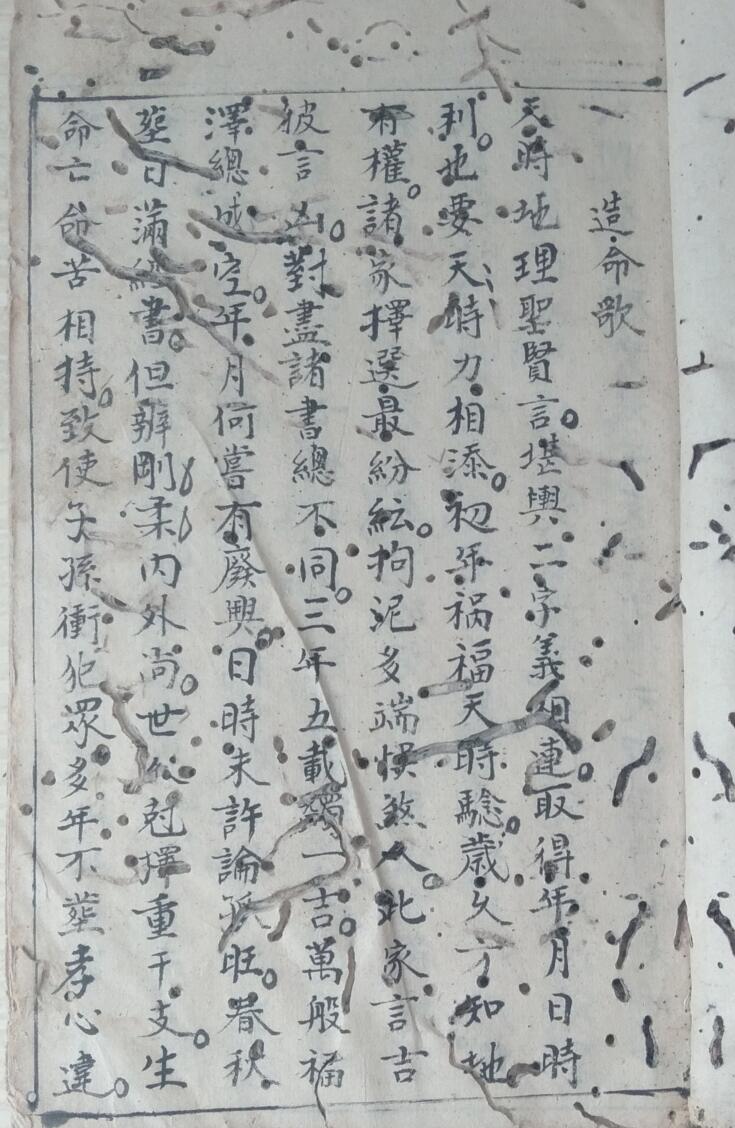 造命歌
天時地理聖賢言。堪輿二字義相連。取得年月日時
利。地要天時力相添。初年禍福天時驗。歲久方知地
有權。諸家擇選最紛紜。拘泥多端悞煞人。此家言吉
彼言凶。對盡諸書總不同。三年五載一吉。萬般福
澤總成空。年月何嘗有廢興。日時未許論孤旺。春秋
塟日滿經書。但辨剛柔內外尚。世人尅擇重干支。生
命亡命苦相持。致使子孫衝犯眾多年不塟孝心違。